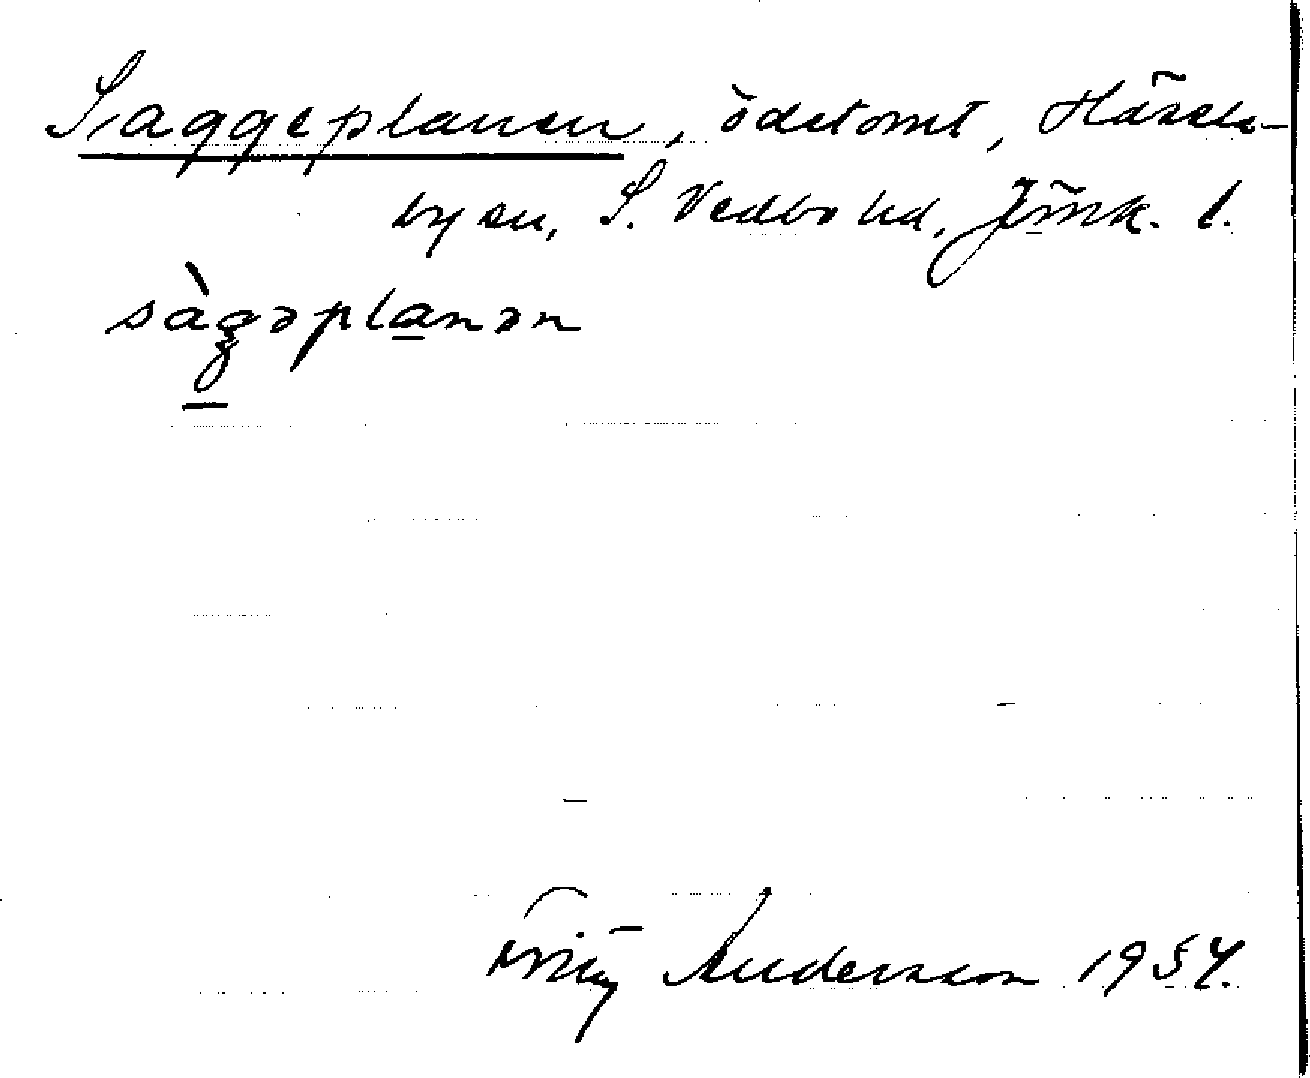 Saggeplanen, ödetomt, Hässle-
bysn, S. Vedbo hd, Jönk. l.
sàgəplanən
Fritz Andersson 1954.